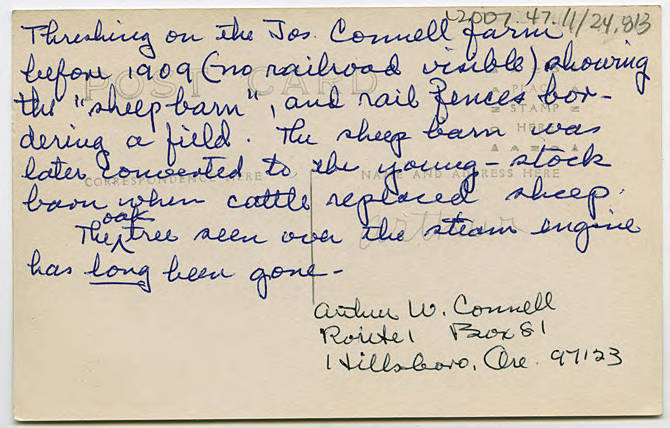 2007.47.11/24,813
Threshing on the Jos. Connell farm
before 1909 (no railroad visible) showing
POST CARD
the "sheep barn", and rail fences bor-
PLACE
STAMP
HERE
dering a field. The sheep barn was
later converted to the young-stock
CORRESPONDENCE HERE
NAME AND ADDRESS HERE
barn when cattle replaced sheep.
The oak tree seen over the steam engine
has long been gone-
Arthur W. Connell
Route 1 Box 81
Hillsboro, Ore. 97123